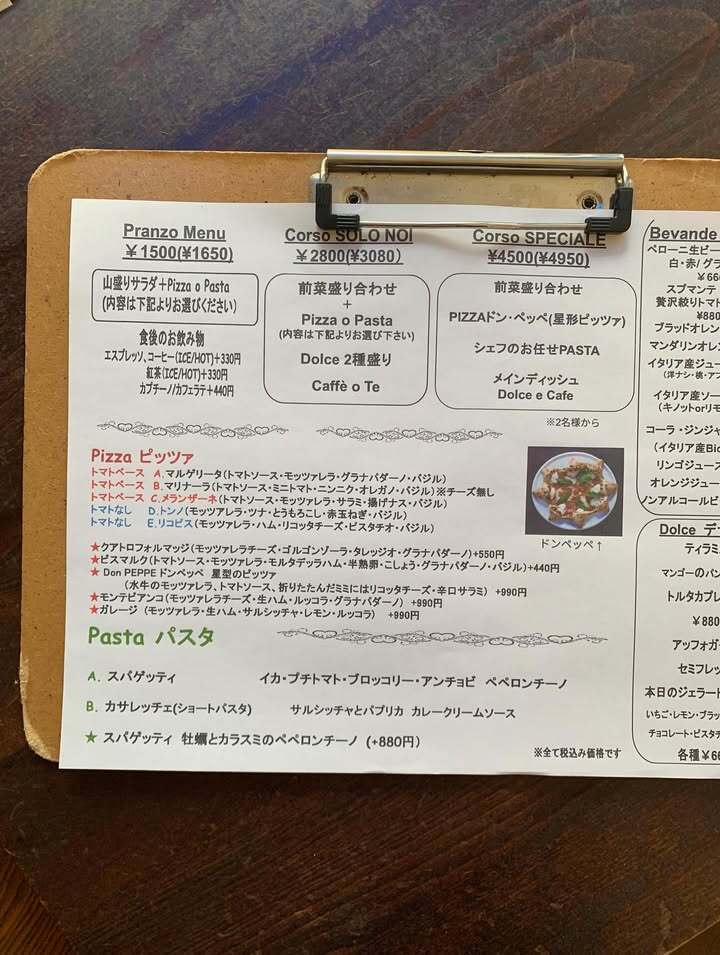 Pranzo Menu
¥1500(¥1650)
山盛りサラダ+Pizza o Pasta
(内容は下記よりお選びください)
食後のお飲み物
エスプレッソ、コーヒー(ICE/HOT)+330円
紅茶(ICE/HOT)+330円
カプチーノ/カフェラテ+440円
Corso SOLO NOI
¥2800(¥3080)
前菜盛り合わせ
+
Pizza o Pasta
(内容は下記よりお選び下さい)
Dolce 2種盛り
Caffè o Te
Corso SPECIALE
¥4500(¥4950)
前菜盛り合わせ
PIZZAドン・ペッペ(星形ピッツァ)
シェフのお任せPASTA
メインディッシュ
Dolce e Cafe
※2名様から
Pizza ピッツァ
トマトベース A.マルゲリータ(トマトソース・モッツァレラ・グラナパダーノ・バジル)
トマトベース B.マリナーラ(トマトソース・ミニトマト・ニンニク・オレガノ・バジル)※チーズ無し
トマトベース C.メランザーネ(トマトソース・モッツァレラ・サラミ・揚げナス・バジル)
トマトなし D.トンノ(モッツァレラ・ツナ・とうもろこし・赤玉ねぎ・バジル)
トマトなし E.リコピス(モッツァレラ・ハム・リコッタチーズ・ピスタチオ・バジル)
ドンペッペ↑
★クアトロフォルマッジ(モッツァレラチーズ・ゴルゴンゾーラ・タレッジオ・グラナパダーノ)+550円
★ビスマルク(トマトソース・モッツァレラ・モルタデッラハム・半熟卵・こしょう・グラナパダーノ・バジル)+440円
★ Don PEPPE ドンペッペ 星型のピッツァ
(水牛のモッツァレラ、トマトソース、折りたたんだミミにはリコッタチーズ・辛口サラミ) +990円
★モンテビアンコ(モッツァレラチーズ・生ハム・ルッコラ・グラナパダーノ) +990円
★ガレージ (モッツァレラ・生ハム・サルシッチャ・レモン・ルッコラ) +990円
Pasta パスタ
A. スパゲッティ イカ・プチトマト・ブロッコリー・アンチョビ ペペロンチーノ
B. カサレッチェ(ショートパスタ) サルシッチャとパプリカ カレークリームソース
★ スパゲッティ 牡蠣とカラスミのペペロンチーノ (+880円)
※全て税込み価格です
Bevande
ペローニ生ビー
白・赤/グラ
¥66
スプマンテ
贅沢絞りトマト
¥880
ブラッドオレン
マンダリンオレン
イタリア産ジュー
(洋ナシ・桃・アプ
イタリア産ソー
(キノットorリモ
コーラ・ジンジャ
(イタリア産Bio
リンゴジュース
オレンジジュー
ノンアルコールビ
Dolce デ
ティラミ
マンゴーのパン
トルタカプレ
¥880
アッフォガー
セミフレッ
本日のジェラート
いちご・レモン・ブラッ
チョコレート・ピスタチ
各種¥66